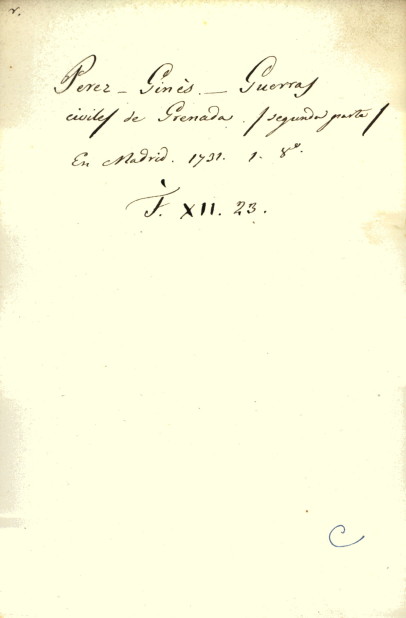 v.
Perez – Ginès. – Guerras
civiles de Grenada. / segunda parte /
En Madrid. 1731. 1. 8°.
F. XII. 23.
C